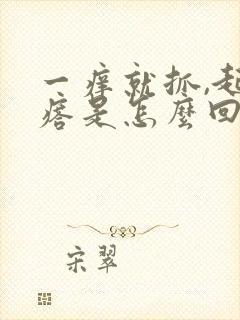 一痒就抓,起
痞是怎么回
宋翠